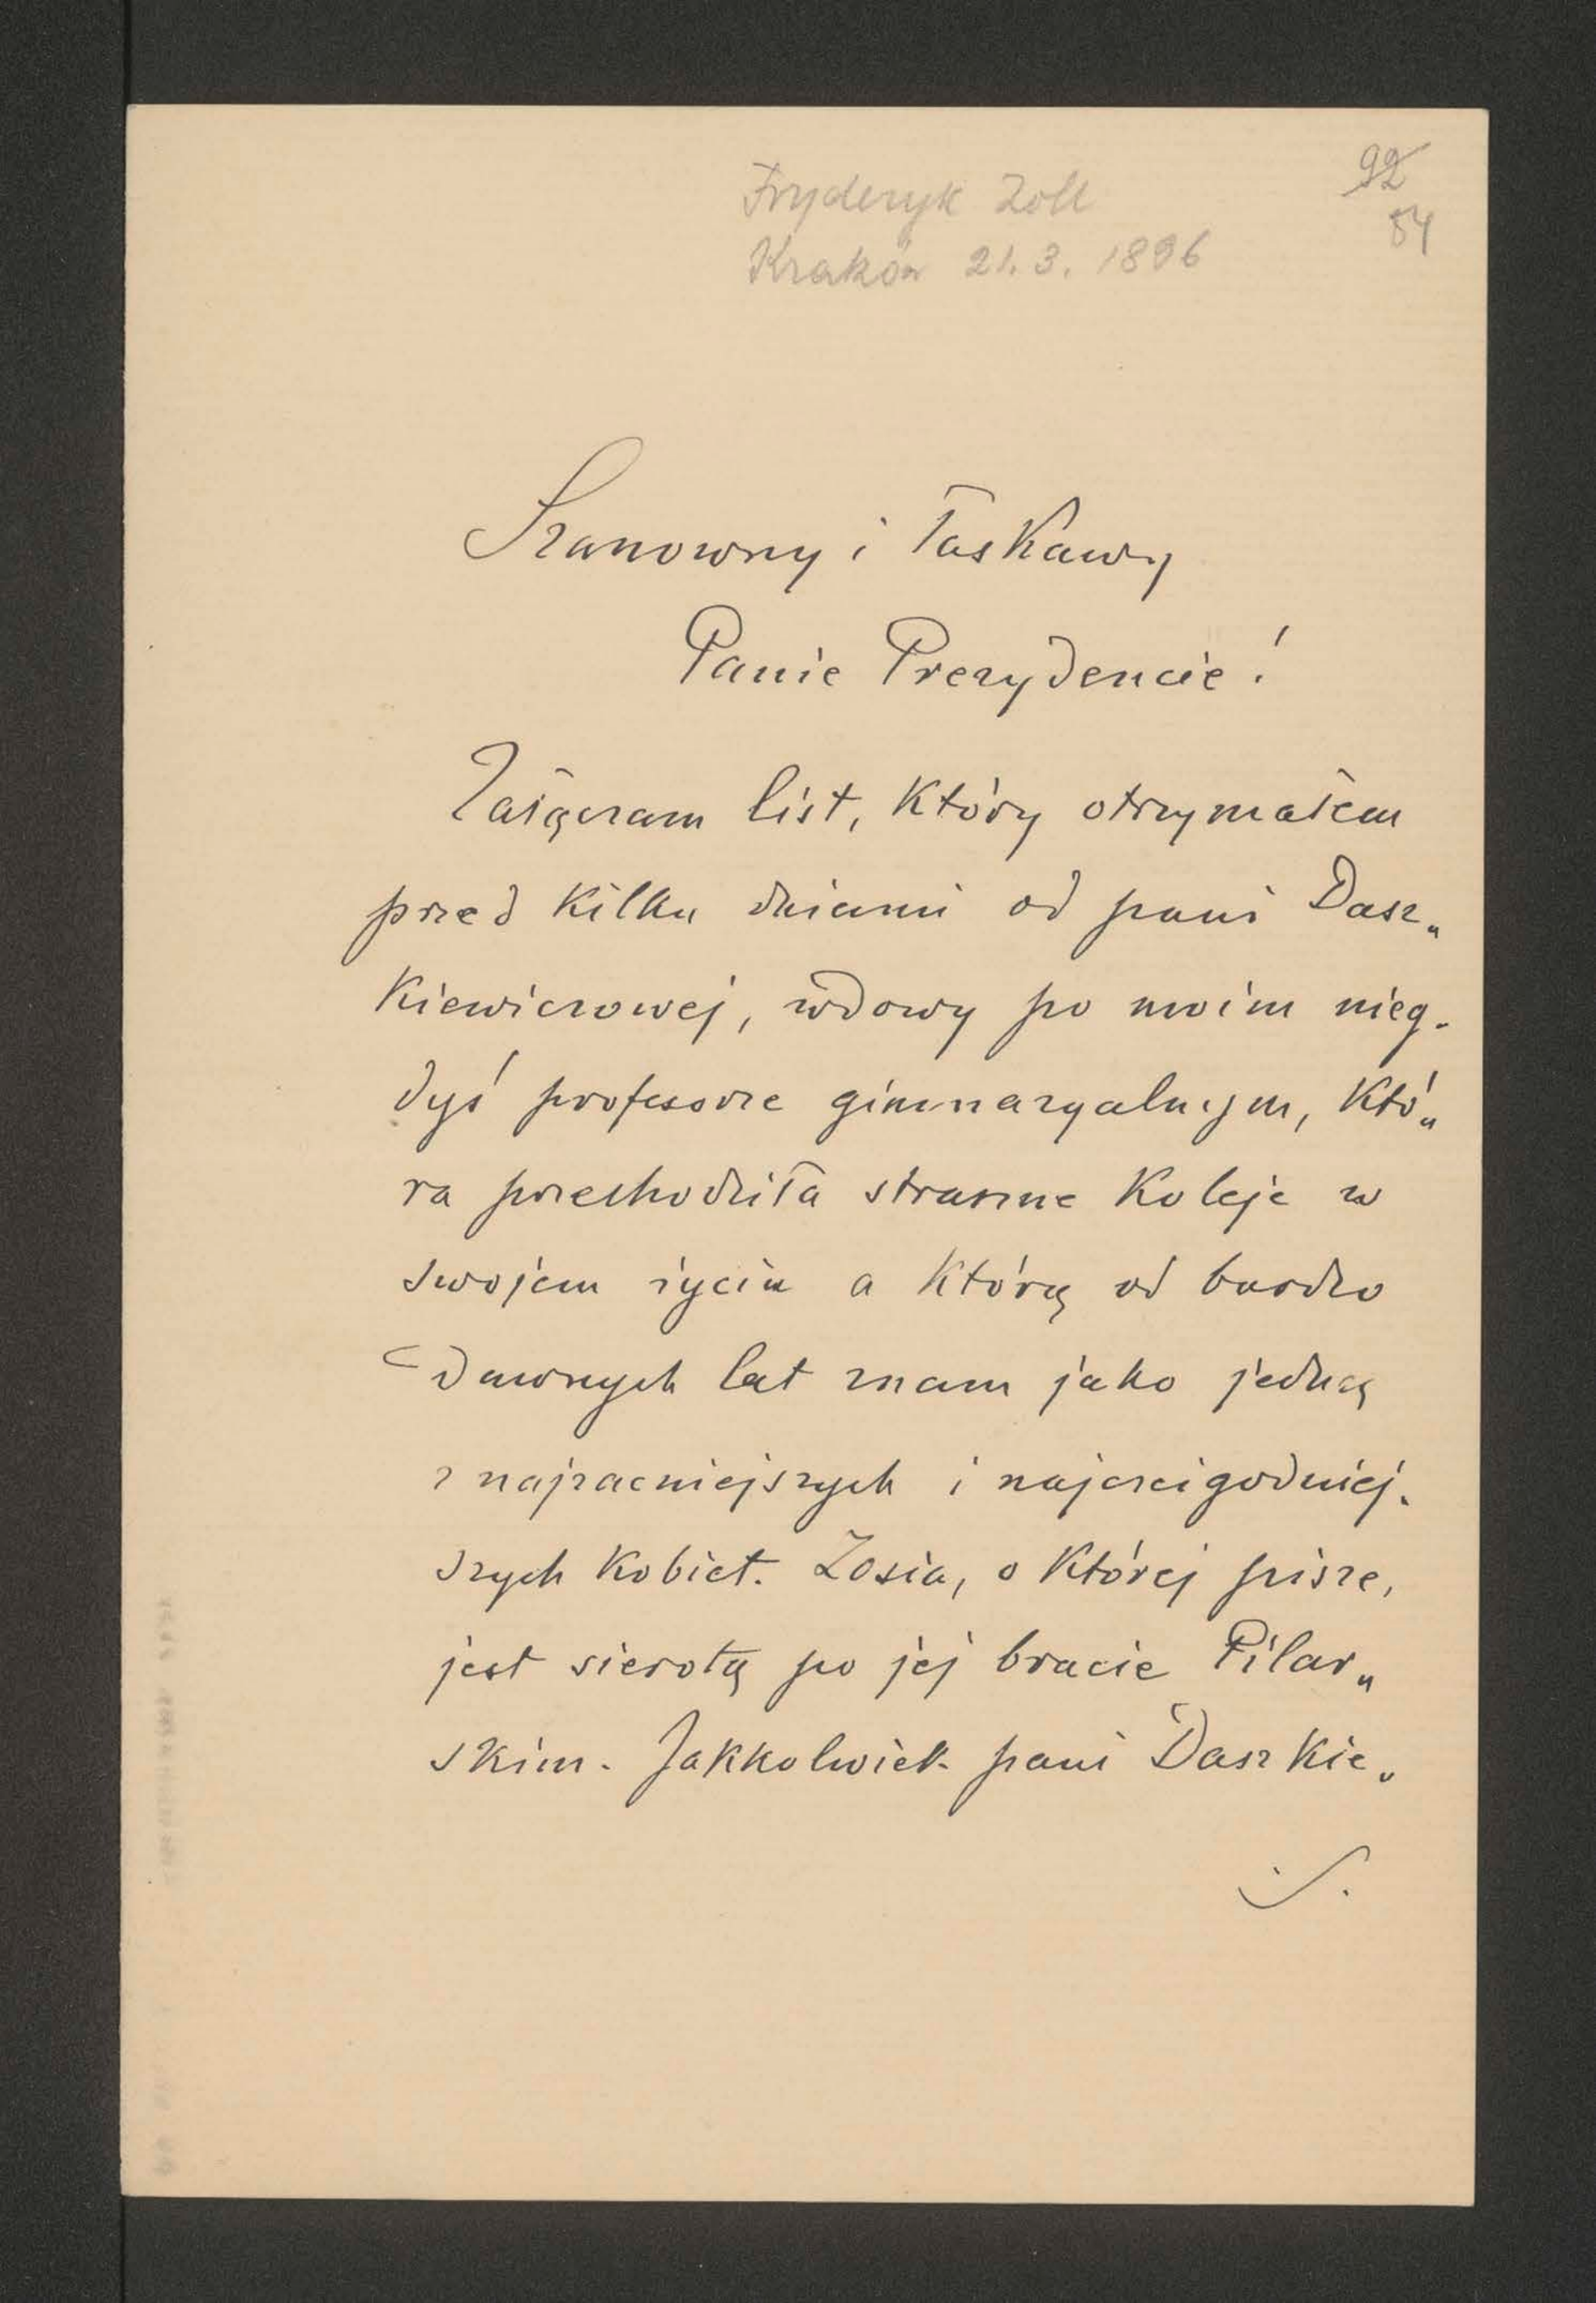 Fryderyk Zoll
Kraków 21. 3. 1896
92
84
Szanowny i Łaskawy
Panie Prezydencie!
Załączam list, który otrzymałem
przed kilku dniami od pani Dasz„
kiewiczowej, wdowy po moim nieg-
dyś profesorze gimnazyalnym, któ„
ra przechodziła straszne koleje w
swojem życiu a którą od bardzo
dawnych lat znam jako jedną
z najzacniejszych i najczcigodniej-
szych kobiet. Zosia, o której pisze,
jest sierotą po jej bracie Pilar„
skim. Jakkolwiek pani Daszkie„